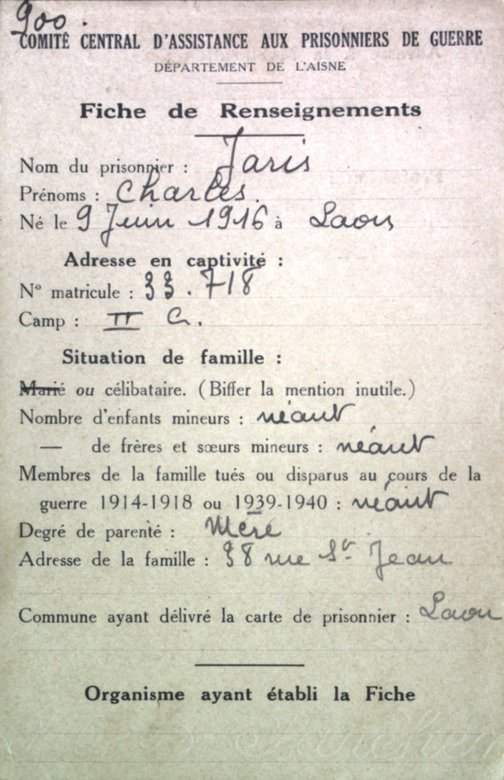 900.
COMITÉ CENTRAL D'ASSISTANCE AUX PRISONNIERS DE GUERRE
DÉPARTEMENT DE L'AISNE
Fiche de Renseignements
Nom du prisonnier : Jaris
Prénoms : Charles.
Né le 9 Juin 1916 à Laon
Adresse en captivité :
N° matricule : 33.718
Camp : II
Situation de famille :
Marié ou célibataire. (Biffer la mention inutile.)
Nombre d'enfants mineurs : néant
— de frères et sœurs mineurs : néant
Membres de la famille tués ou disparus au cours de la
guerre 1914-1918 ou 1939-1940 : néant
Degré de parenté : Mère
Adresse de la famille : 38 rue St Jean
Commune ayant délivré la carte de prisonnier : Laon
Organisme ayant établi la Fiche